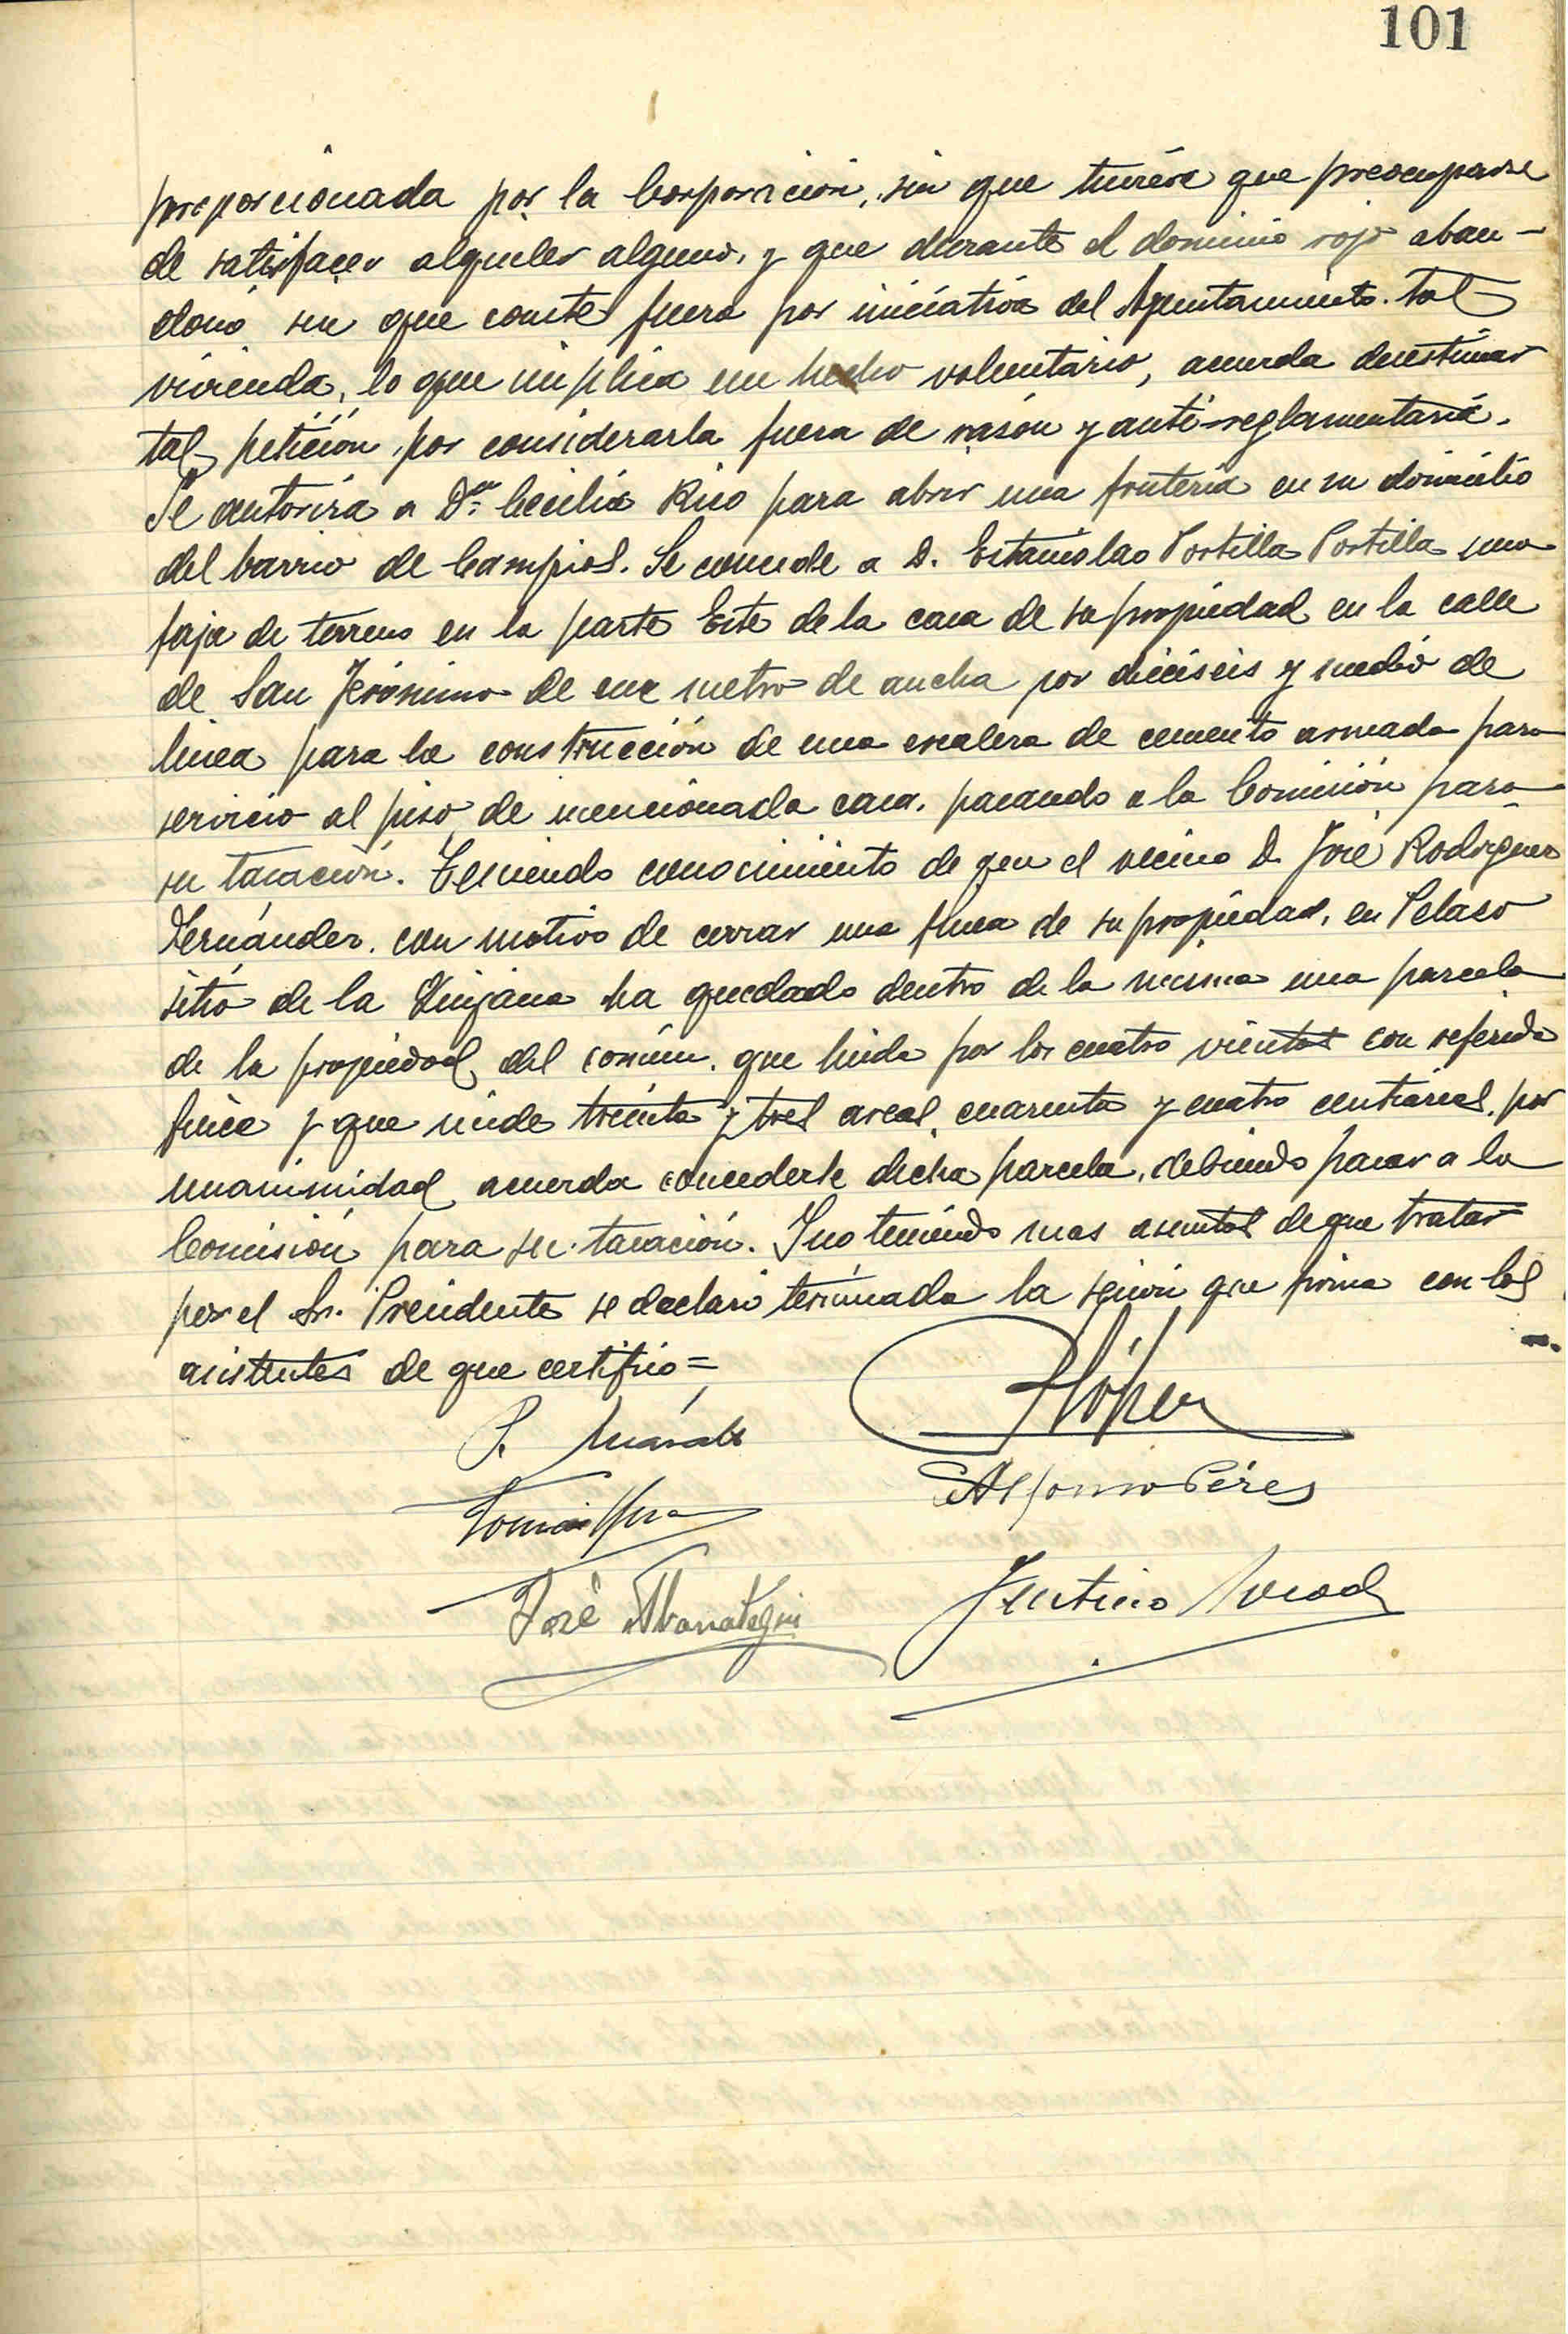 101
proporcionada por la Corporación, sin que tuviera que preocuparse
de satisfacer alquiler alguno, y que durante el dominio rojo aban-
donó sin que conste fuera por iniciativa del Ayuntamiento tal
vivienda, lo que implica un hecho voluntario, acuerda desestimar
tal petición por considerarla fuera de rasón y anti-reglamentaria.
Se autoriza a Dª. Cecilia Rico para abrir una frutería en su domicilio
del barrio de Campios. Se concede a D. Estanislao Portilla Portilla una
faja de terreno en la parte Este de la casa de su propiedad en la calle
de San Jerónimo de un metro de ancha por dieciseis y medio de
linea para la construcción de una escalera de cemento armada para
servicio al piso de mencionada casa, pasando a la Comisión para
su tasación. Teniendo conocimiento de que el vecino D. José Rodriguez
Fernández, con motivo de cerrar una finca de su propiedad, en Pelaso
sitio de la Quijana ha quedado dentro de la misma una parcela
de la propiedad del común, que linda por los cuatro vientos con referida
finca y que mide treinta y tres areas, cuarenta y cuatro centiareas, por
unanimidad acuerda concederle dicha parcela, debiendo pasar a la
Comisión para su tasación. Y no teniendo mas asuntos de que tratar
por el Sr. Presidente se declaró terminada la sesión que firma con los
asistentes de que certifico=
P. López
Alfonso Pérez
Tomás
José Abarrategui
Faustino